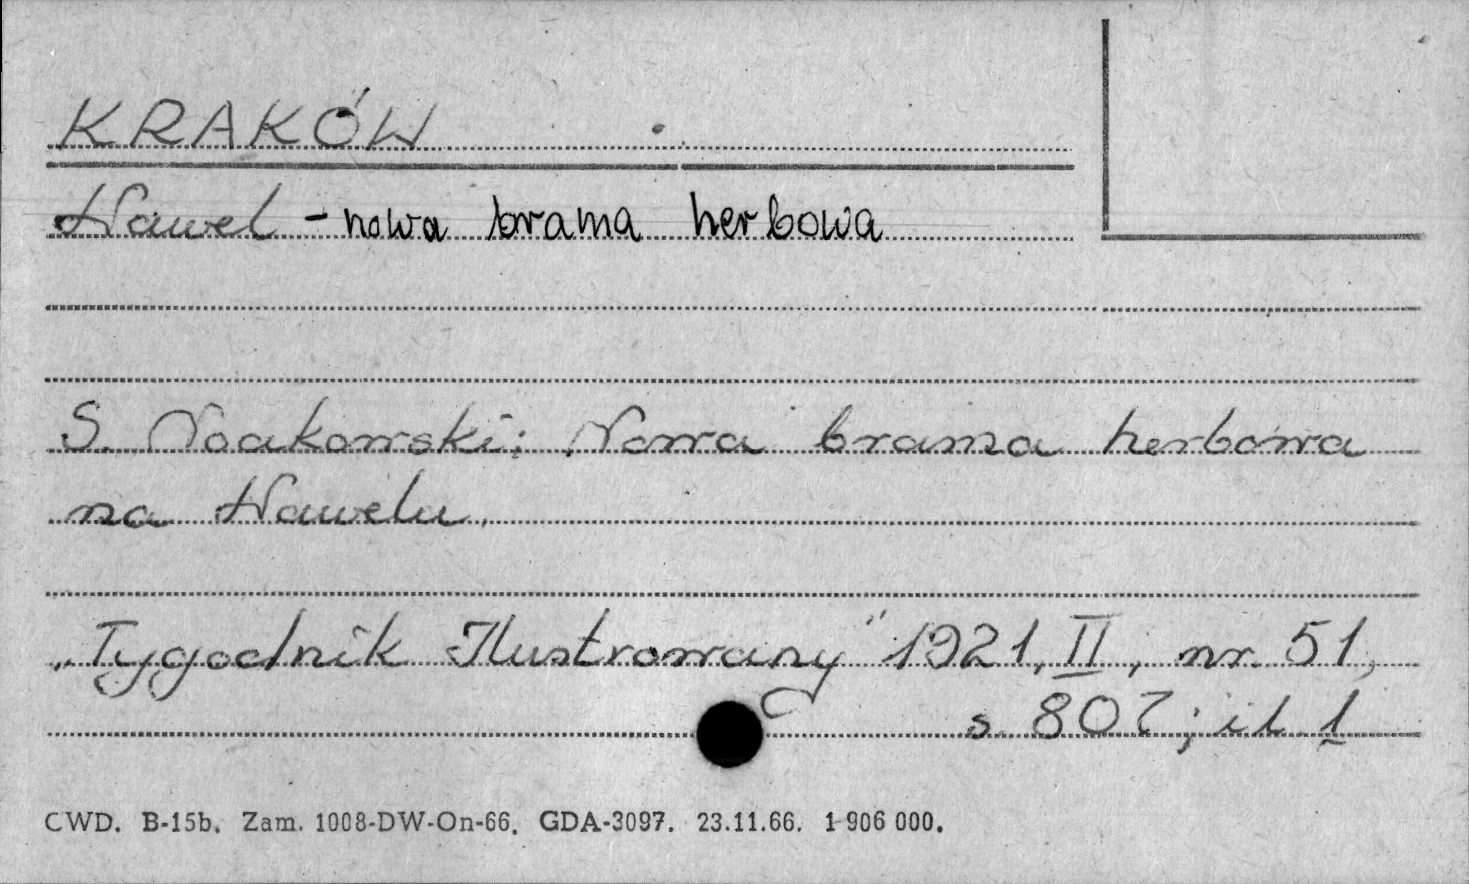 KRAKÓW
Wawel - nowa brama herbowa
S. Noakowski: Nowa brama herbowa
na Wawelu.
„Tygodnik Ilustrowany" 1921, II, nr. 51,
s. 807; il. 1
CWD. B-15b. Zam. 1008-DW-On-66. GDA-3097. 23.11.66. 1 906 000.